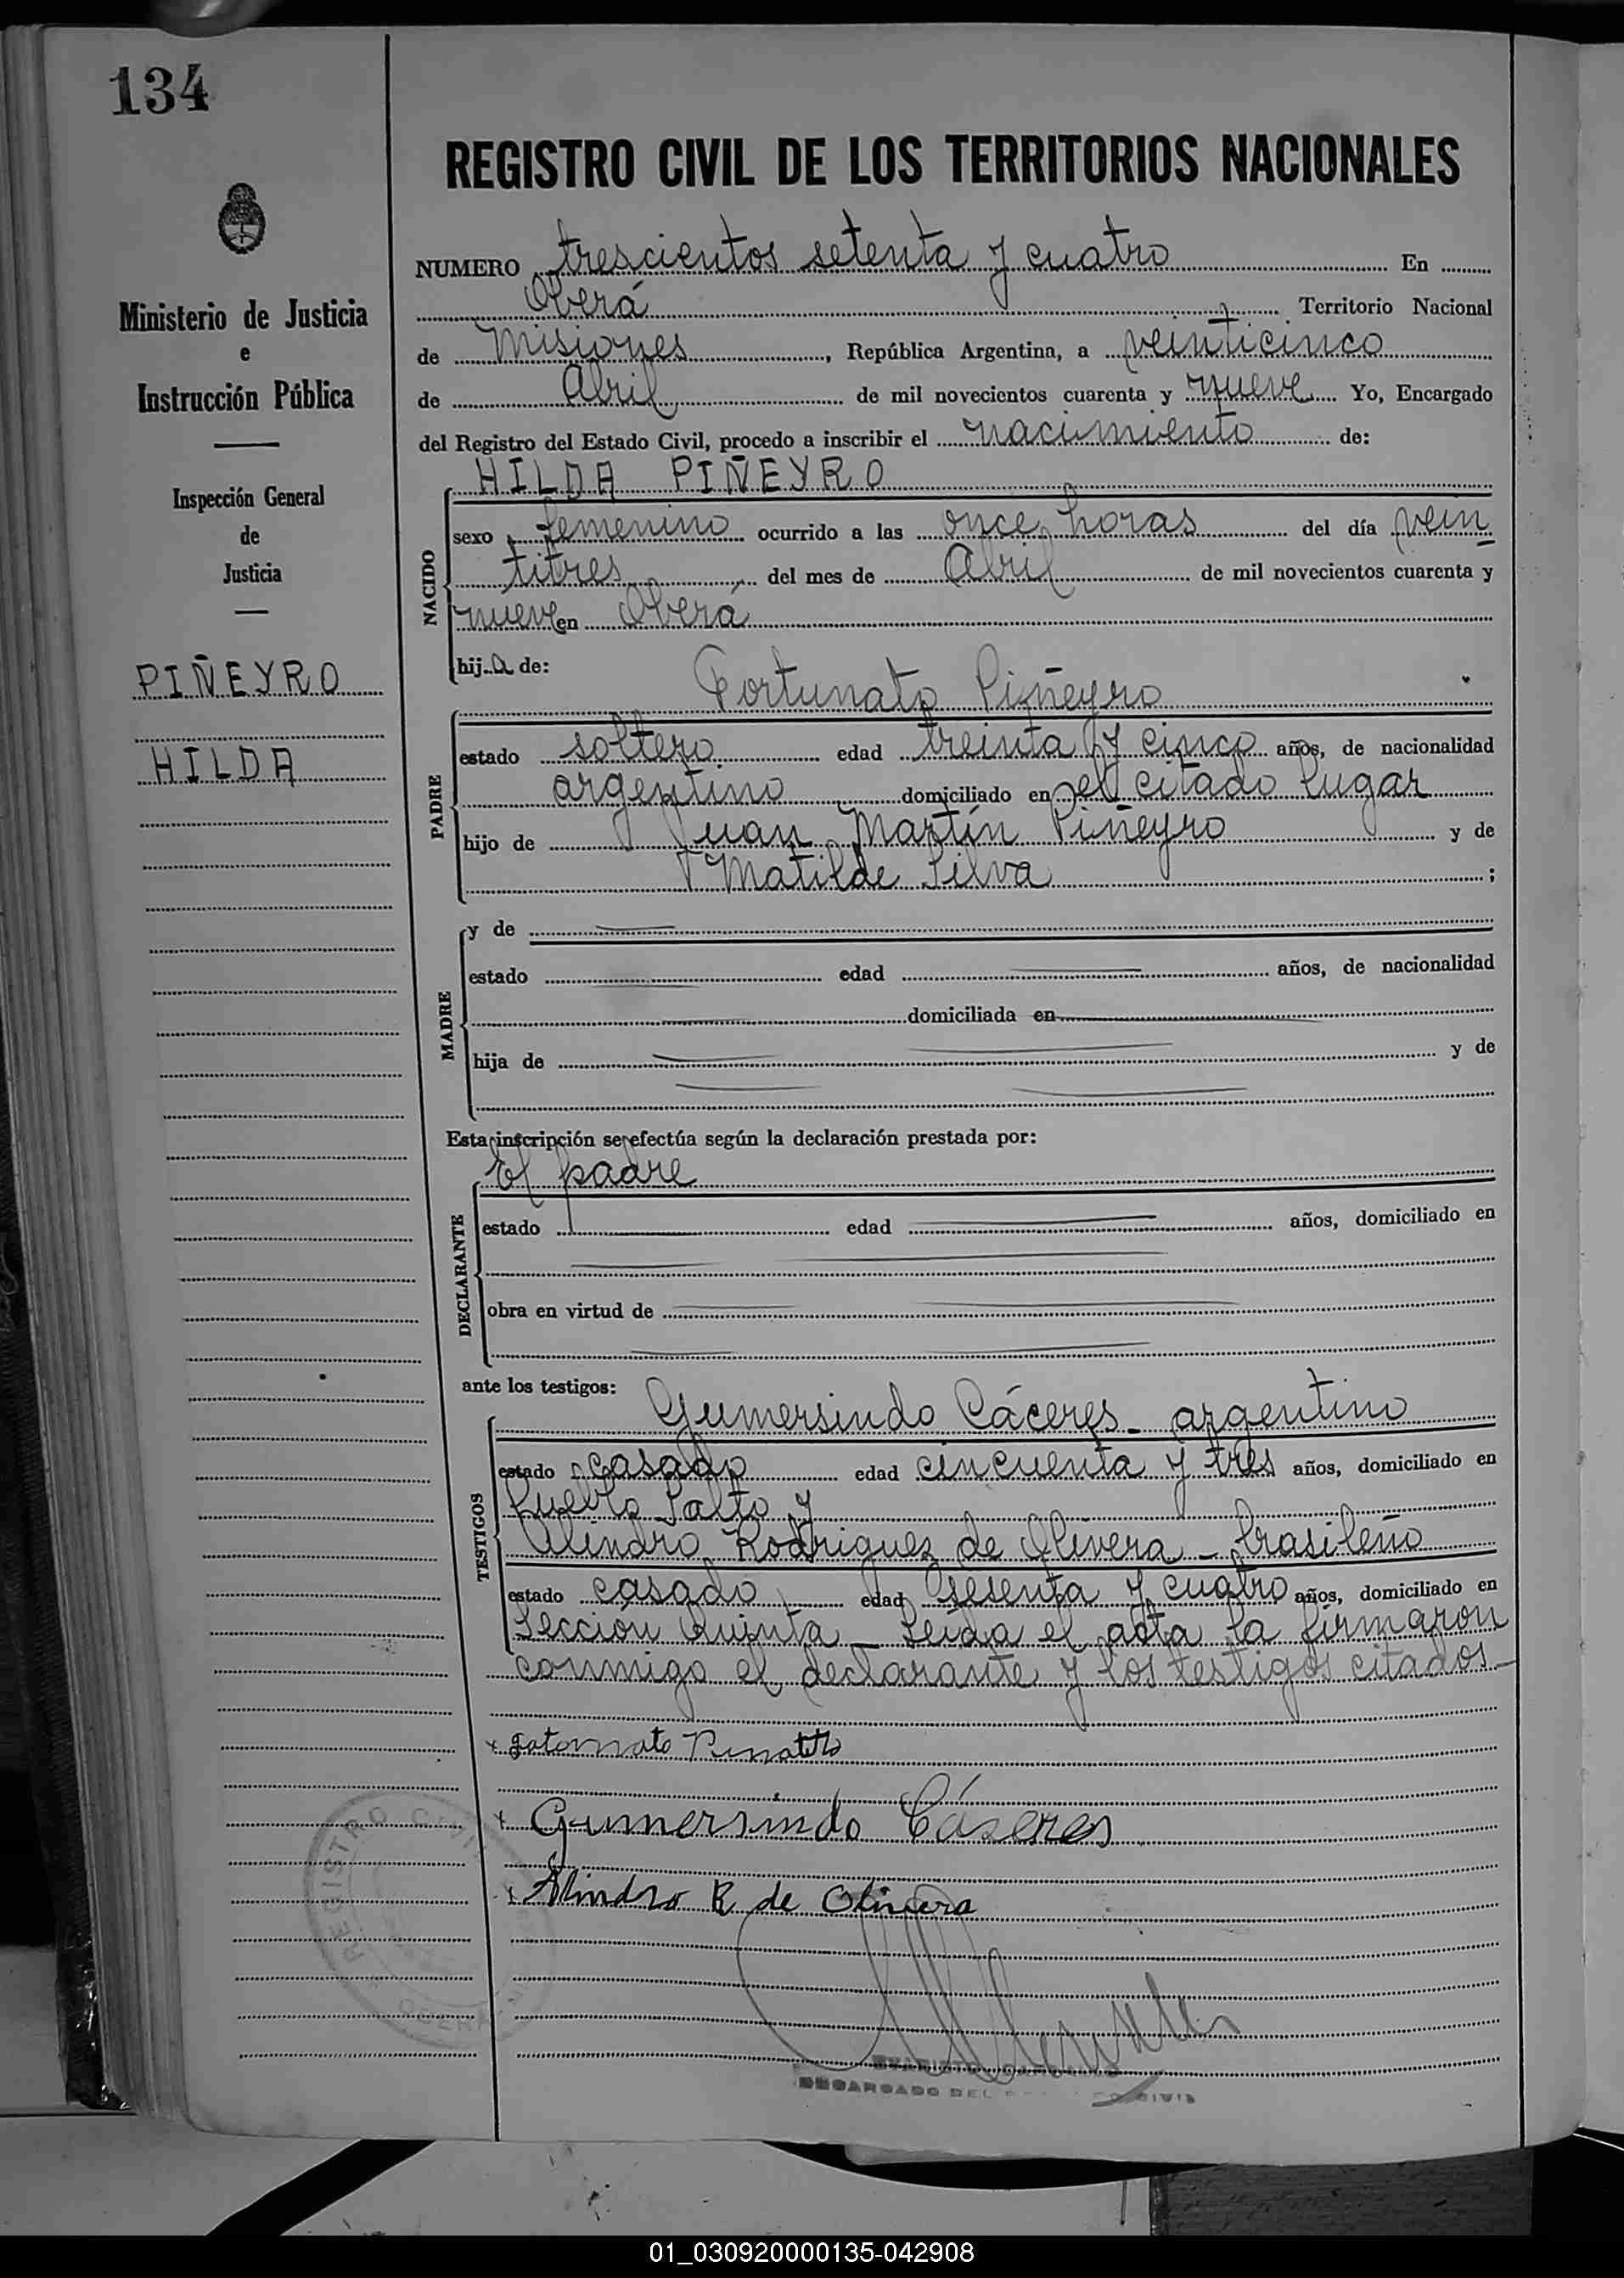 134
REGISTRO CIVIL DE LOS TERRITORIOS NACIONALES
NUMERO trescientos setenta y cuatro En
Oberá Territorio Nacional
de Misiones, República Argentina, a veinticinco
de Abril de mil novecientos cuarenta y nueve Yo, Encargado
del Registro del Estado Civil, procedo a inscribir el nacimiento de:
Ministerio de Justicia
e
Instrucción Pública
Inspección General
de
Justicia
PIÑEYRO
HILDA
HILDA PIÑEYRO
NACIDO
sexo femenino ocurrido a las once horas del día vein
titres del mes de Abril de mil novecientos cuarenta y
nueve en Oberá
hija de:
Fortunato Piñeyro
PADRE
estado soltero edad treinta y cinco años, de nacionalidad
argentino domiciliado en el citado lugar
hijo de Juan Martín Piñeyro y de
Matilde Silva ;
MADRE
y de
estado edad años, de nacionalidad
domiciliada en
hija de y de
Esta inscripción se efectúa según la declaración prestada por:
El padre
DECLARANTE
estado edad años, domiciliado en
obra en virtud de
ante los testigos:
Gumersindo Cáceres - argentino
TESTIGOS
estado casado edad cincuenta y tres años, domiciliado en
Pueblo Salto y
Alindro Rodriguez de Olivera - brasileño
estado casado edad sesenta y cuatro años, domiciliado en
Sección Quinta - Leída el acta la firmaron
conmigo el declarante y los testigos citados -
Gumersindo Cáseres
Alindro R de Olivera
REGISTRO CIVIL
ENCARGADO DEL CIVIL
01_030920000135-042908